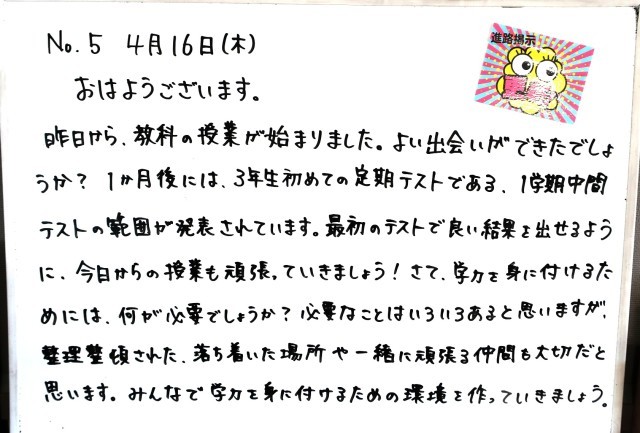 No.5 4月16日(木)
進路掲示
おはようございます。
昨日から、教科の授業が始まりました。よい出会いができたでしょ
うか？ 1か月後には、3年生初めての定期テストである、1学期中間
テストの範囲が発表されています。最初のテストで良い結果を出せるよう
に、今日からの授業も頑張っていきましょう！さて、学力を身に付けるた
めには、何が必要でしょうか？必要なことはいろいろあると思いますが、
整理整頓された、落ち着いた場所や一緒に頑張る仲間も大切だと
思います。みんなで学力を身に付けるための環境を作っていきましょう。